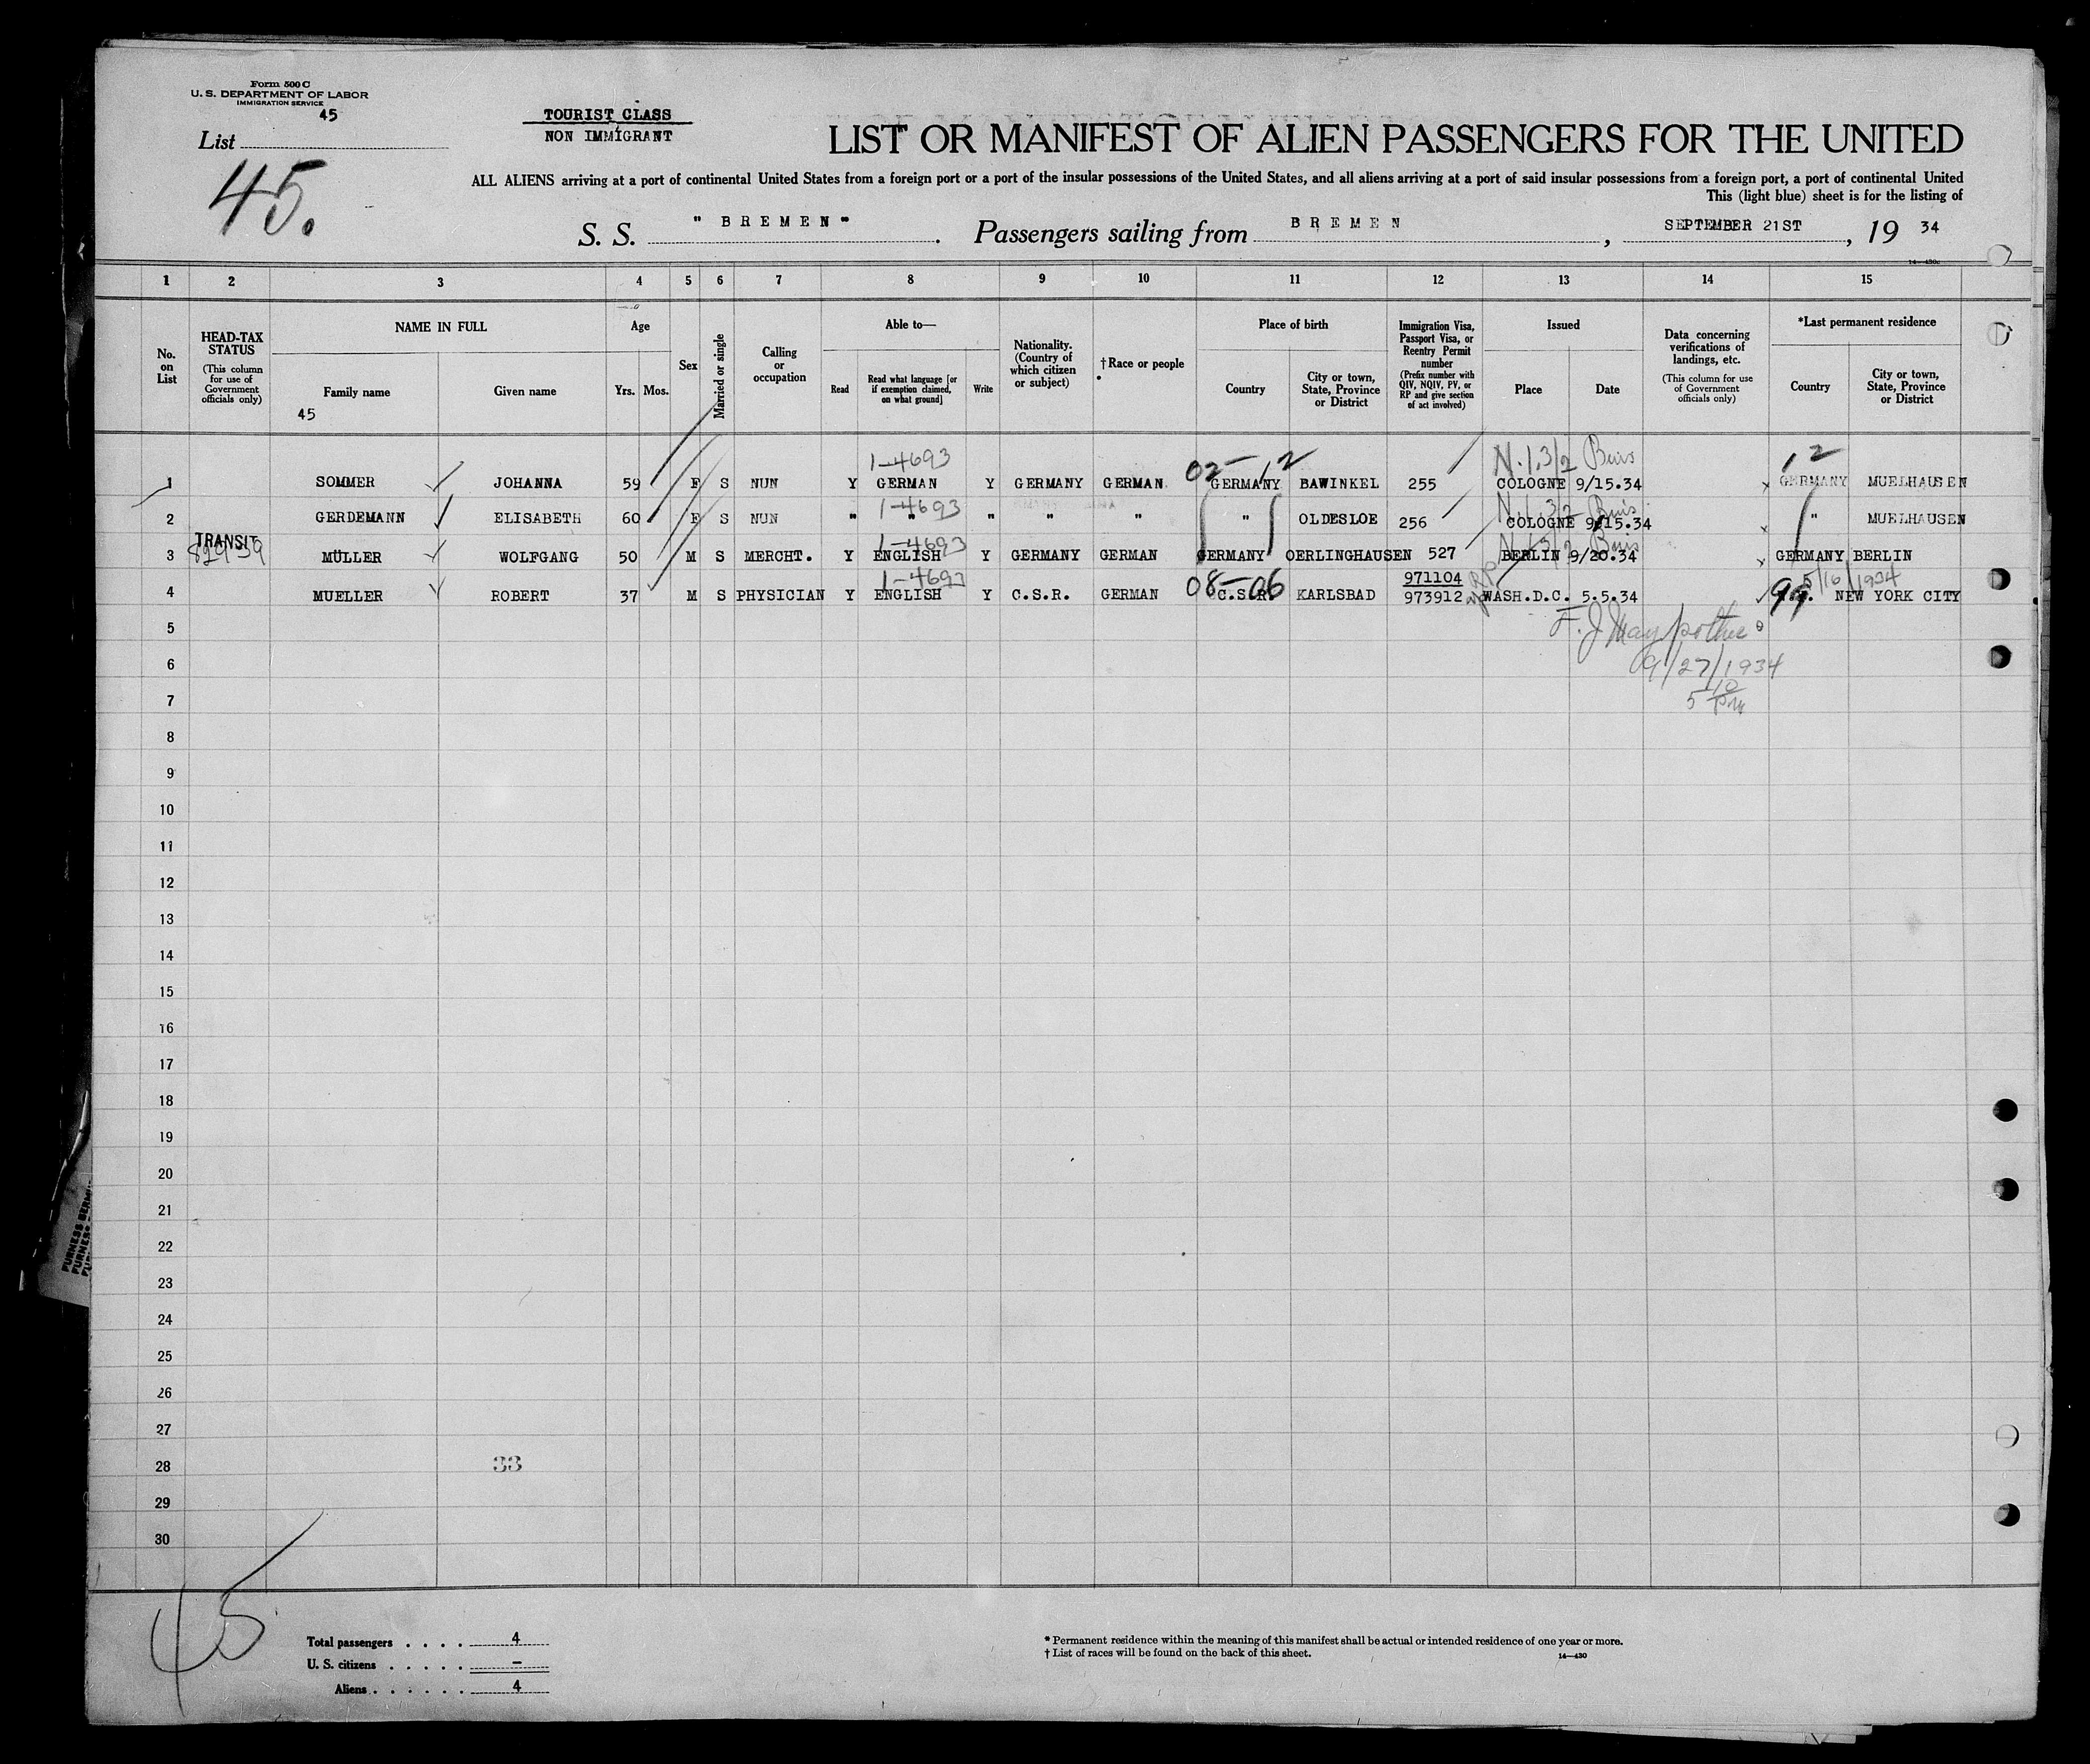 Form 500 C
U. S. DEPARTMENT OF LABOR
IMMIGRATION SERVICE
45
List
45.
TOURIST CLASS
NON IMMIGRANT
LIST OR MANIFEST OF ALIEN PASSENGERS FOR THE UNITED
ALL ALIENS arriving at a port of continental United States from a foreign port or a port of the insular possessions of the United States, and all aliens arriving at a port of said insular possessions from a foreign port, a port of continental United
This (light blue) sheet is for the listing of
S. S. "BREMEN". Passengers sailing from BREMEN, SEPTEMBER 21ST, 19 34
14—430c
1 2 3 4 5 6 7 8 9 10 11 12 13 14 15
No. on List
HEAD-TAX STATUS
(This column for use of Government officials only)
NAME IN FULL
Family name
Given name
45
Age
Yrs. Mos.
Sex
Married or single
Calling or occupation
Able to—
Read
Read what language [or if exemption claimed, on what ground]
Write
Nationality. (Country of which citizen or subject)
† Race or people
Place of birth
Country
City or town, State, Province or District
Immigration Visa, Passport Visa, or Reentry Permit number
(Prefix number with QIV, NQIV, PV, or RP and give section of act involved)
Issued
Place
Date
Data concerning verifications of landings, etc.
(This column for use of Government officials only)
*Last permanent residence
Country
City or town, State, Province or District
1-4693 02- 12 N.1.3/2 12
1 SOMMER JOHANNA 59 F S NUN Y GERMAN Y GERMANY GERMAN GERMANY BAWINKEL 255 COLOGNE 9/15.34 GERMANY MUELHAUSEN
1-4693 N.1.3/2
2 GERDEMANN ELISABETH 60 F S NUN " " " " " " OLDESLOE 256 COLOGNE 9/15.34 " MUELHAUSEN
TRANSIT 1-4693 N.1.3/2
3 829-39 MÜLLER WOLFGANG 50 M S MERCHT. Y ENGLISH Y GERMANY GERMAN GERMANY OERLINGHAUSEN 527 BERLIN 9/20.34 GERMANY BERLIN
1-4693 08-06 971104 RP 5/16/1934
4 MUELLER ROBERT 37 M S PHYSICIAN Y ENGLISH Y C.S.R. GERMAN C.S.R. KARLSBAD 973912 WASH.D.C. 5.5.34 99 NEW YORK CITY
5
6 9/27/1934
7
8
9
10
11
12
13
14
15
16
17
18
19
20
21
22
23
24
25
26
27
28 33
29
30
45
Total passengers . . . . 4
U. S. citizens . . . . . –
Aliens . . . . . . 4
* Permanent residence within the meaning of this manifest shall be actual or intended residence of one year or more.
† List of races will be found on the back of this sheet.
14—430